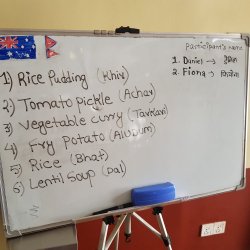 Participant's name
1. Daniel →
2. Fiona → फियोना
1) Rice Pudding (Khir)
2) Tomato pickle (Achar)
3) Vegetable curry (Tarkari)
4) Fry Potato (Aludum)
5) Rice (Bhat)
6) Lentil Soup (Dal)